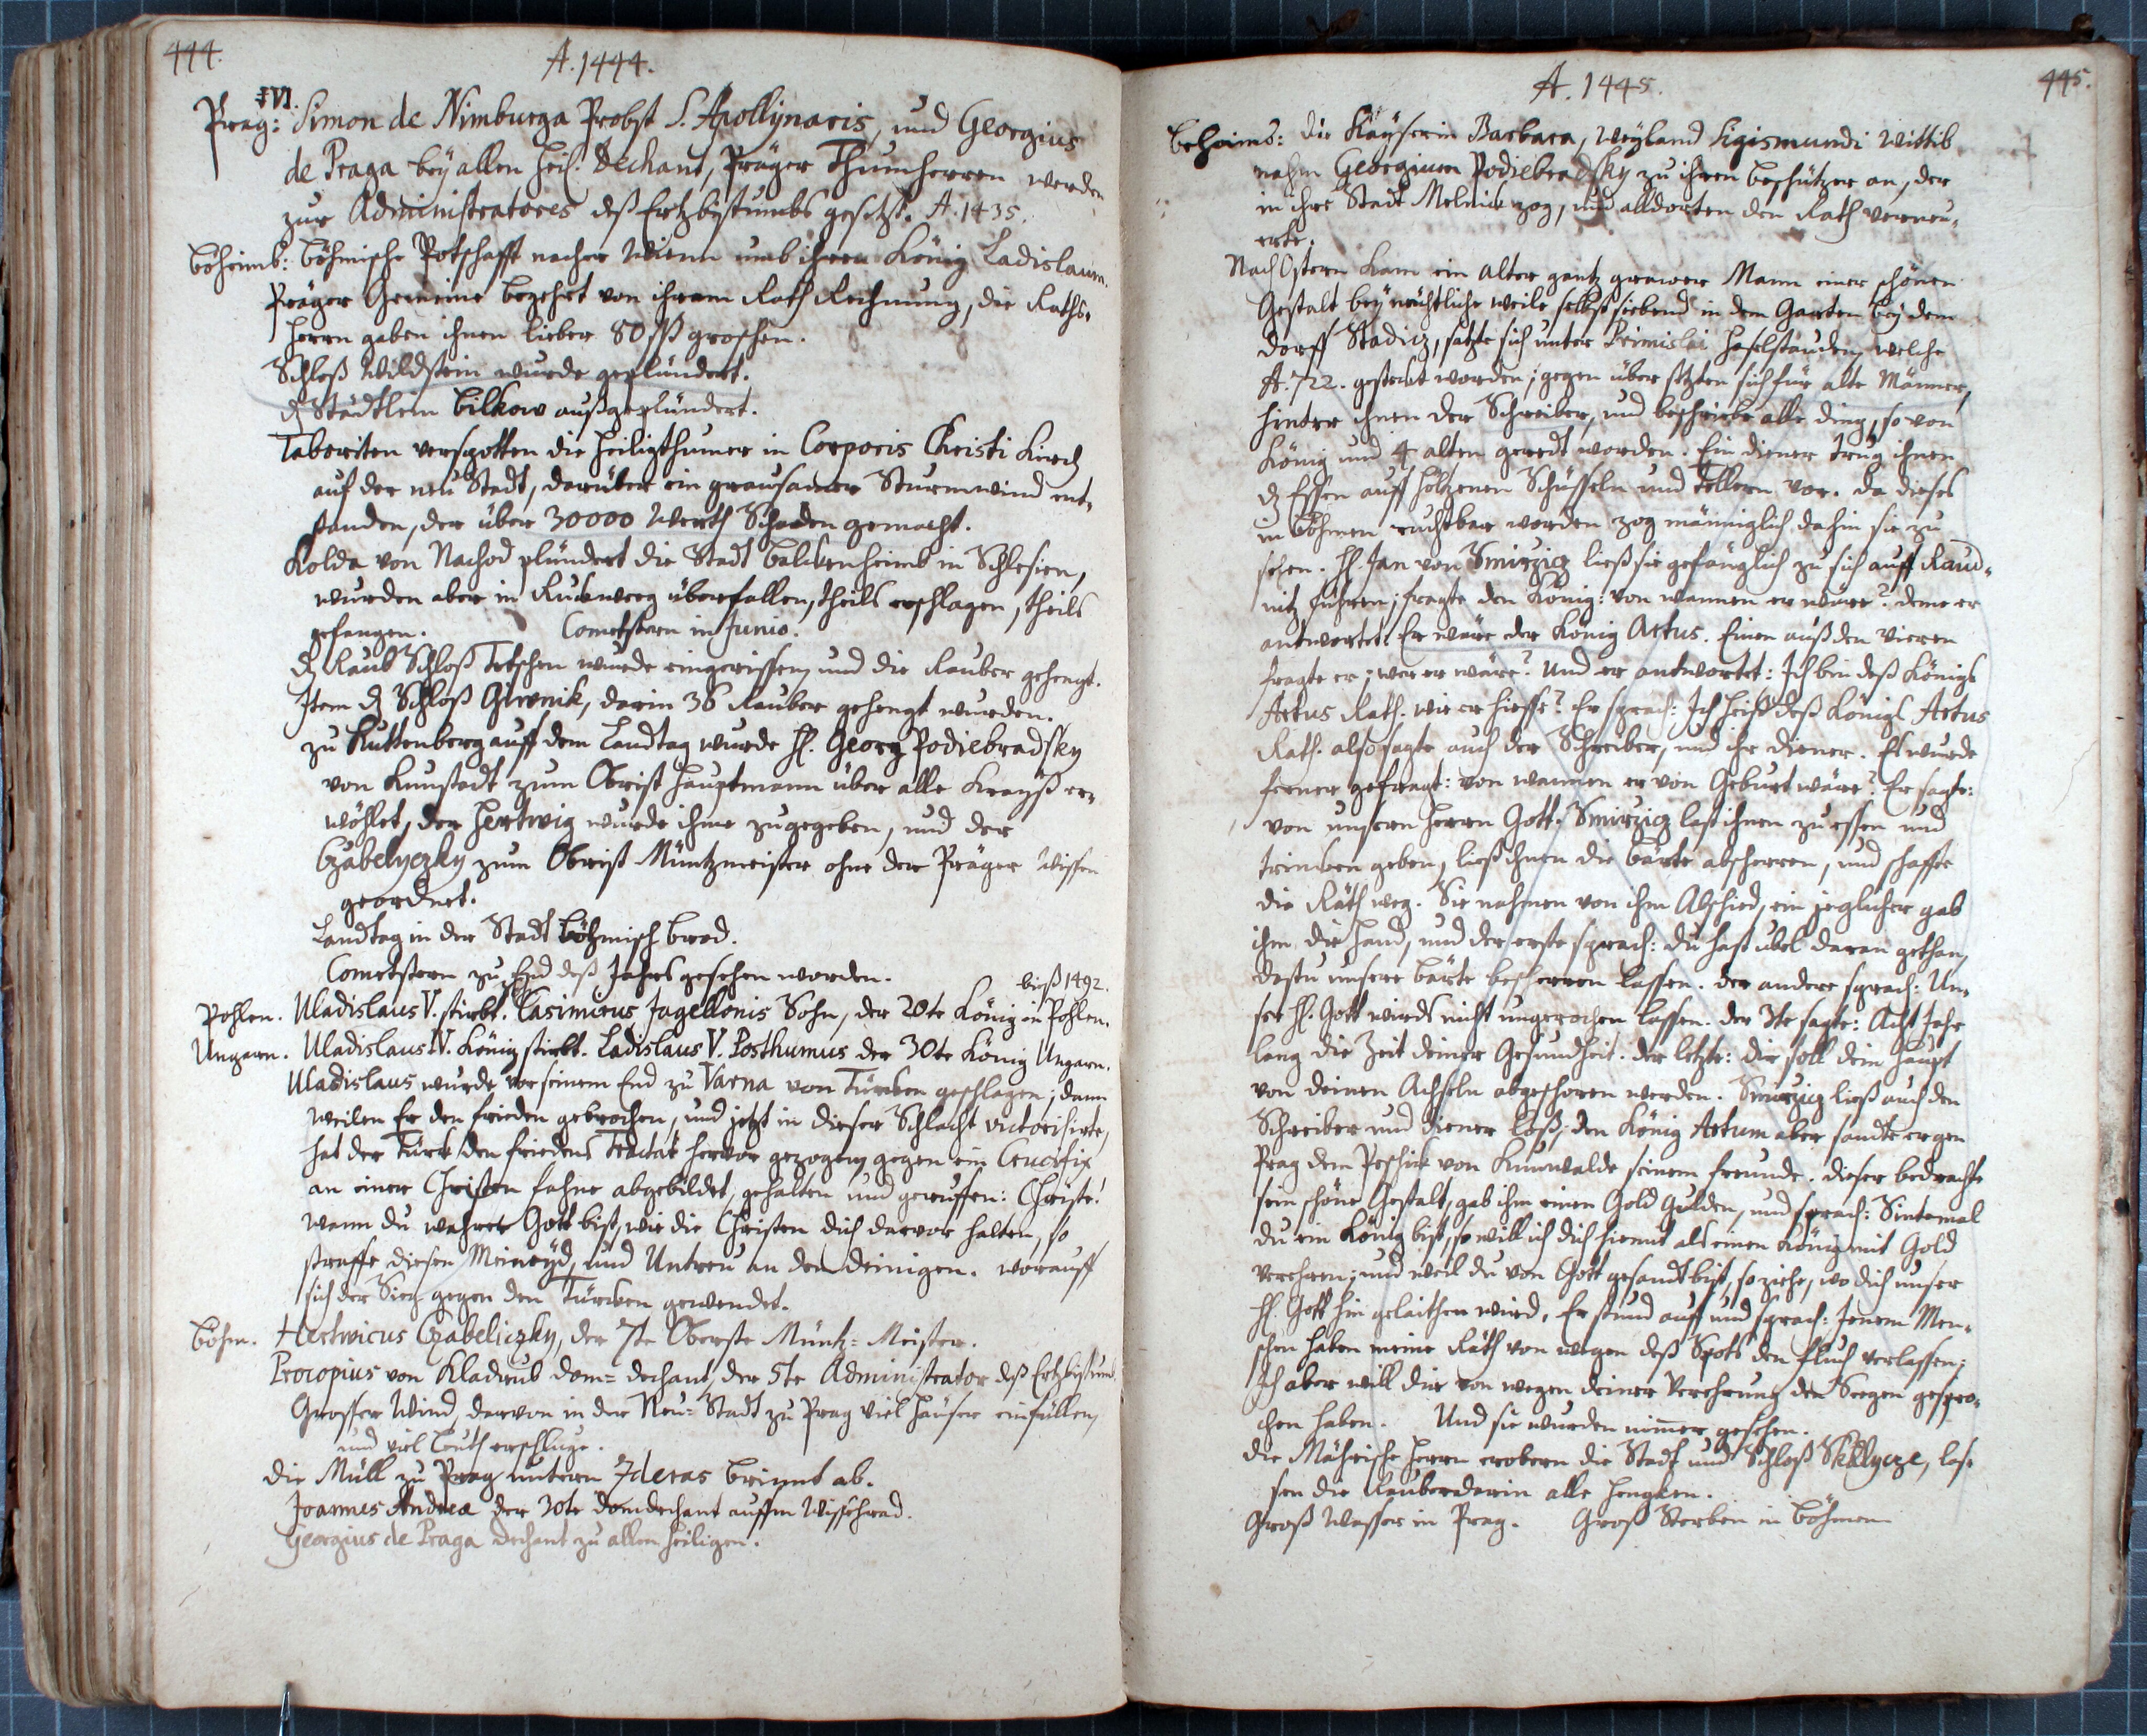 444.
A. 1444.
IVI.
Prag: Simon de Nimburga Probst S. Apollijnaris, und Georgius
de Praga bey allen heil. Dechant, Präger Thumherren werden
zur Administratores deß Ertzbystumbs gesetzt. A. 1435.
Böheimb: Böhmische Potschafft nacher Wienn umb ihren König Ladislaum.
Präger Gemeine begehrt von ihrem Rath Rechnung, die Raths-
herrn gaben ihnen lieber 80 ßß groschen.
Schloß Wildstein wurde geplündert.
dz Städtlein Bilkow außgeplündert.
Taboriten verspotten die Heiligthumer in Corporis Christi Kirch
auf der neu Stadt, darüber ein grausamer Sturmwind ent-
standen, der über 30000 Werth Schaden gemacht.
Kolda von Nachod plündert die Stadt Balckenheimb in Schlesien,
wurden aber in Ruckweeg überfallen, theils erschlagen, theils
gefangen. Cometstern in Junio.
dz Raub Schloß Tetschen wurde eingerissen, und die Rauber gehengt.
Item dz Schloß Giwonik, darin 36 Rauber gehengt wurden.
zu Kuttenberg auff dem Landtag wurde H. Georg Podiebradsky
von Kunstadt zum Obrist Hauptmann über alle Krayß er-
wöhlet, der Hertwig wurde ihme zugegeben, und der
Czabelyczky zum Obrist Müntzmeister ohne der Präger Wissen
geordnet.
Landtag in der Stadt Böhmisch brod.
Cometstern zu End deß Jahrs gesehen worden.
bieß 1492.
Pohlen. Uladislaus V. stirbt. Casimirus Jagellonis Sohn, der 20te König in Pohlen.
Ungarn. Uladislaus IV. König stirbt. Ladislaus V. Posthumus der 30te König Ungarn.
Uladislaus wurde vor seinem End zu Varna von Türcken geschlagen; dann
weilen Er den frieden gebrochen, und jetzt in dieser Schlacht victorisirte,
hat der Türck den friedens Tractat hervor gezogen, gegen ein Crucifix
an einer Christen fahne abgebildet, gehalten und geruffen: Christe!
wann du wahrer Gott bist, wie die Christen dich darvor halten, so
straffe diesen Meineyd, und Untreu an den deinigen. worauff
sich der Sieg gegen den Türcken gewendet.
Böhm. Hertwicus Czabeliczky, der 7te Oberste Müntz-Meister.
Procopius von Kladrub dom-dechant, der 5te Administrator deß Ertzbistumb.
Grosser Wind, darvon in der Neu-Stadt zu Prag viel häuser einfüllen,
und viel Leuth erschluge.
die Müll zu Prag untern Zderas brinnt ab.
Joannes Andreæ der 30te domdechant auffm Wissehrad.
Georgius de Praga dechant zu allen heiligen.
445.
A. 1445.
Beheims: die Kayserin Barbara, weyland Sigismundi Wittib
nahm Georgium Podiebradsky zu ihren beschützer an, der
in ihre Stadt Melnick zog, und alldorten den Rath verneu-
erte.
Nach Ostern kam ein alter gantz grawer Mann einer schönen
Gestalt bey nächtliche weile selbst siebend in dem Garten bey dem
dorff Stadicz, satzte sich unter Primislai haselstauden, welche
A. 722. gesteckt worden; gegen über setzten sich für alte Männer,
hinter ihnen der Schreiber, und beschriebe alle ding, so von
König und 4 alten geredt worden. Ein diener trug ihnen
dz Essen auff holtzenen Schüsseln und Tellern vor. da dieses
in Böhmen ruchtbar worden zog männiglich dahin sie zu
sehen. H. Jan von Smirzicz ließ sie gefänglich zu sich auff Raud-
nitz führen; fragte den König: von wannen er wäre? deme er
antwortet: Er wäre der König Artus. Einen auß den Vieren
fragte er; wer er wäre? Und er antwortet: Ich bin deß Königs
Artus Rath. wie er hiesse? Er sprach: Ich heiß deß Königs Artus
Rath. also sagte auch der Schreiber, und ihr diener. Er wurde
ferner gefragt: von wannen er von Geburt wäre? Er sagte:
von unsern Herrn Gott. Smirzicz last ihnen zu essen und
trincken geben, ließ ihnen die Bärte abscheeren, und schaffte
die Räth weg. Sie nahmen von ihm Abschied, ein jeglicher gab
ihm die hand, und der erste sprach: du hast übel daran gethan,
dastu unsere Bärte bescheeren lassen. der andere sprach: Un-
ser H. Gott wirds nicht ungerochen lassen. der 3te sagte: Acht Jahr
lang die Zeit deiner Gesundheit. der letzte: dir soll dein Haupt
von deinen Achseln abgeschoren werden. Smirzicz ließ auch den
Schreiber und diener loß; den König Artum aber sandte er gen
Prag dem Peschick von Kunwalde seinem freunde. dieser betrachte
sein schöne Gestalt, gab ihm einen Gold Gulden, und sprach: Sintemal
du ein König bist, so will ich dich hiemit als einen König mit Gold
verehren; und weil du von Gott gesandt bist, so ziehe, wo dich unser
H. Gott hin gelaithen wird. Er stund auf und sprach: Jenem Men-
schen haben meine Räth von wegen deß Spots den fluch verlassen;
Ich aber will dir von wegen deiner Verehrung den Seegen gespro-
chen haben. Und sie wurden nimmer gesehen.
die Mährische Herrn erobern die Stadt und Schloß Skalycze, las-
sen die Rauber darin alle hengken.
Groß Wasser in Prag. Groß Sterben in Böhmen